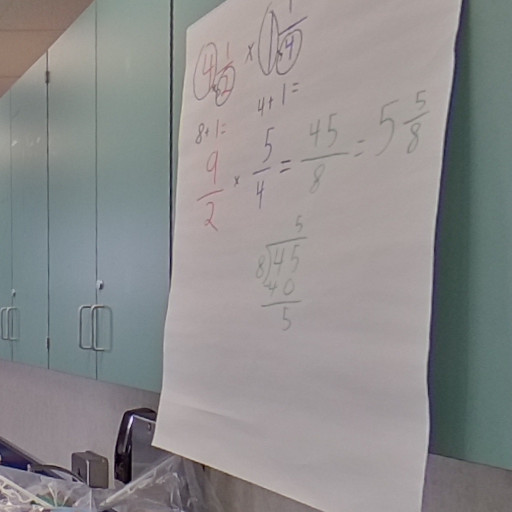 4 1/2 × 1 1/4
8+1= 4+1=
9/2 × 5/4 = 45/8 = 5 5/8
5
8)45
40
5